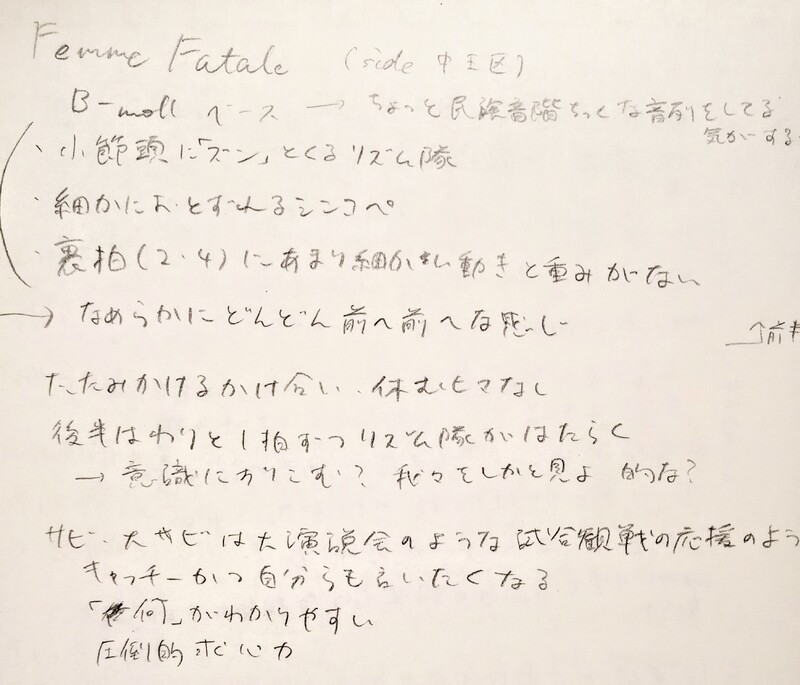 Femme Fatale (side 中王区)
B-moll ベース → ちょっと民族音階ちっくな音列をしてる
気がする
・小節頭に「ズン」とくるリズム隊
・細かにおとずれるシンコペ
・裏拍(2・4)にあまり細かい動きと重みがない
→ なめらかにどんどん前へ前へな感じ
↑前半
たたみかけるかけ合い、休むヒマなし
後半はわりと1拍ずつリズム隊がはたらく
→ 意識にかりこむ? 我々をしかと見よ 的な?
サビ、大サビは大演説会のような 試合観戦の応援のよう
キャッチーかつ自分らも言いたくなる
「何」がわかりやすい
圧倒的求心力